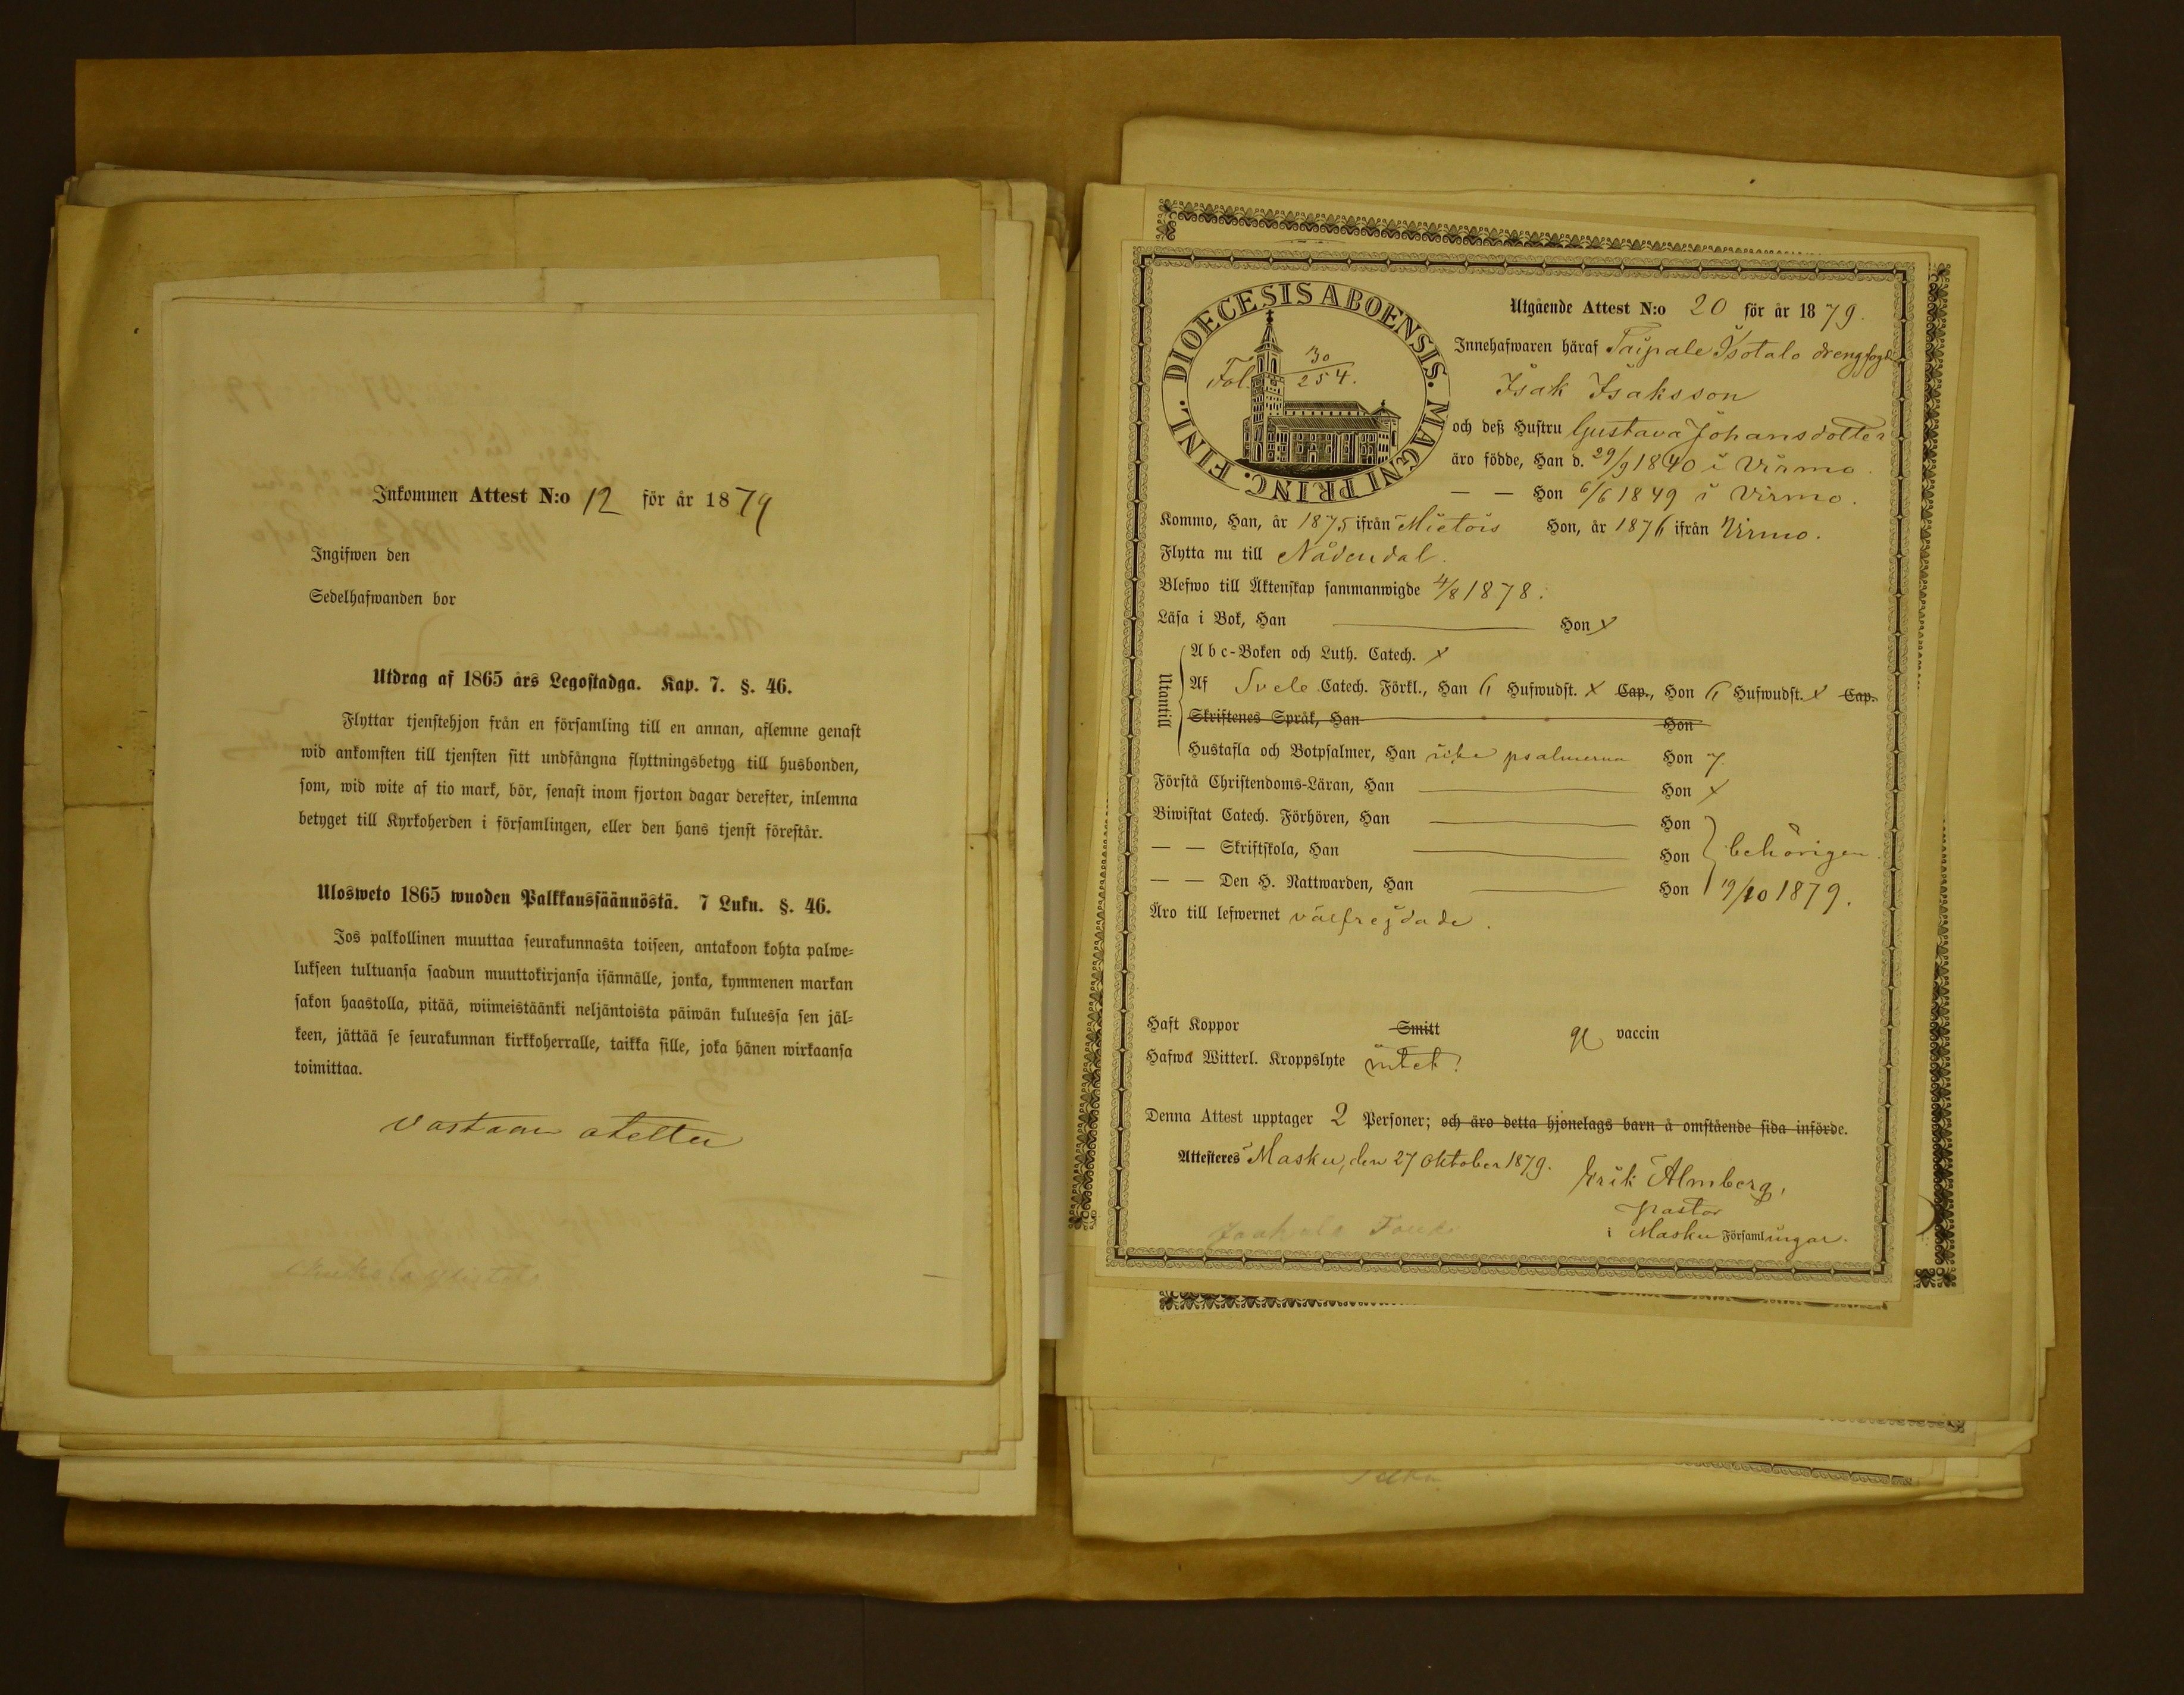 Inkommen Attest N:o 12 för år 1879
Ingifwen den
Sedelhafwanden bor
Utdrag af 1865 års Legostadga. Kap. 7. §. 46.
Flyttar tjenstehjon från en församling till en annan, aflemne genast
wid ankomsten till tjensten sitt undfångna flyttningsbetyg till husbonden,
som, wid wite af tio mark, bör, senast inom fjorton dagar derefter, inlemna
betyget till Kyrkoherden i församlingen, eller den hans tjenst förestår.
Ulosweto 1865 wuoden Palkkaussäännöstä. 7 Luku. §. 46.
Jos palkollinen muuttaa seurakunnasta toiseen, antakoon kohta palwe-
lukseen tultuansa saadun muuttokirjansa isännälle, jonka, kymmenen markan
sakon haastolla, pitää, wiimeistäänki neljäntoista päiwän kuluessa sen jäl-
keen, jättää se seurakunnan kirkkoherralle, taikka sille, joka hänen wirkaansa
toimittaa.
vastaan otettu
DIOECESIS ABOENSIS. MAGNI PRINC. FINL.
Fol. 30/254.
Utgående Attest N:o 20 för år 1879.
Innehafwaren häraf Taipale Isotalo drengfogde
Isak Isaksson
och deß Hustru Gustava Johansdotter
äro födde, Han d. 29/9 1840 i Virmo.
— — Hon 6/6 1849 i Virmo.
Kommo, Han, år 1875 ifrån Mietois Hon, år 1876 ifrån Virmo.
Flytta nu till Nådendal.
Blefwo till Äktenskap sammanwigde 4/8 1878.
Läsa i Bok, Han Hon x
Utantill
Abc-Boken och Luth. Catech. x
Af Svele Catech. Förkl., Han 6 Hufwudst. x Cap., Hon 6 Hufwudst. x Cap.
Skriftenes Språk, Han Hon
Hustafla och Botpsalmer, Han icke psalmerna Hon 7
Förstå Christendoms-Läran, Han Hon x
Biwistat Catech. Förhören, Han Hon
— — Skriftskola, Han Hon behörigen.
— — Den H. Nattwarden, Han Hon 19/10 1879.
Äro till lefwernet välfrejdade.
Haft Koppor Smitt vaccin
Hafwa Witterl. Kroppslyte intet.
Denna Attest upptager 2 Personer; och äro detta hjonelags barn å omstående sida införde.
Attesteres Masku, den 27 Oktober 1879.
Erik Almberg,
Pastor
i Masku Församlingar.